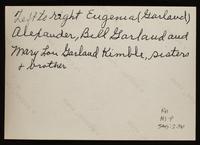 Left to right Eugenia (Garland)
Alexander, Bill Garland and
Mary Lou Garland Kimble, sisters
& brother